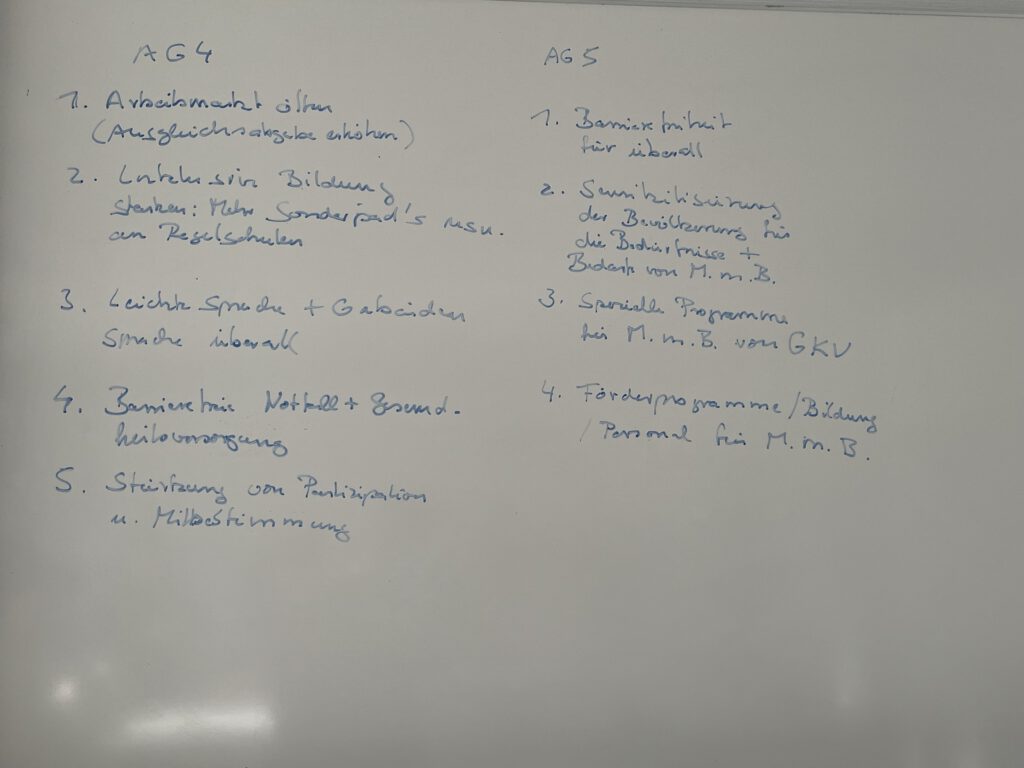 AG 4
1. Arbeitsmarkt öffnen
(Ausgleichsabgabe erhöhen)
2. Inklusive Bildung
stärken: Mehr Sonderpäd's usw.
an Regelschulen
3. Leichte Sprache + Gebärden
sprache überall
4. Barrierefreie Notfall + Gesund-
heitsversorgung
5. Stärkung von Partizipation
u. Mitbestimmung
AG 5
1. Barrierefreiheit
für überall
2. Sensibilisierung
der Bevölkerung für
die Bedürfnisse +
Bedarfe von M.m.B.
3. Spezielle Programme
für M.m.B. von GKV
4. Förderprogramme/Bildung
/Personal für M.m.B.